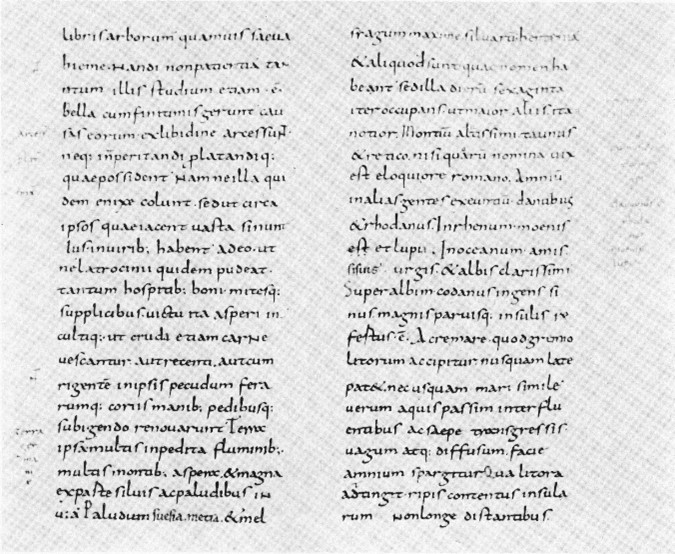 libris arborum quamuis saeua
hieme. Nandi non patientia tan
tum illis studium etiam ē.
bella cum finitimis gerunt cau
sas eorum ex libidine arcessunt.
neq; inperitandi platandiq;
quae possident Nam ne illa qui
dem enixe colunt. sed ut circa
ipsos quae iacent uasta sinum
lus in uirib; habent adeo. ut
ne latrocinii quidem pudeat.
tantum hospitib; boni mitesq;
supplicibus. uictu ita asperi in
cultiq; ut cruda etiam carne
uescantur aut recenti. aut cum
rigentē in ipsis pecudum fera
rumq; coriis manib; pedibusq;
subigendo renouarunt Terra
ipsa multis inpedita fluminib;.
multis montib; aspera. & magna
ex parte siluis ac paludibus in
uia Paludum suesia. metia. & mel
fragum maxime siluarū hercynia
& aliquod sunt quae nomen ha
beant sed illa dierū sexaginta
iter occupans. ut maior aliis ita
notior. Montiū altissimi taunus
& retico. nisi quarū nomina uix
est eloqui ore romano. Amniū
in alias gentes exeuntiū danubius
& rhodanus. In rhenum moenis
est et lupia. In oceanum amis
sisuis uirgis. & albis clarissimi
Super albim codanus ingens si
nus magnis paruisq; insulis re
fertus. ē. Ac re mare. quod gremio
litorum accipitur nusquam late
pat&. nec usquam mari simile
uerum aquis passim inter flu
entibus ac saepe transgressis.
uagum atq; diffusum. facie
amnium spargitur Qua litora
adtingit ripis contentus insula
rum non longe distantibus.